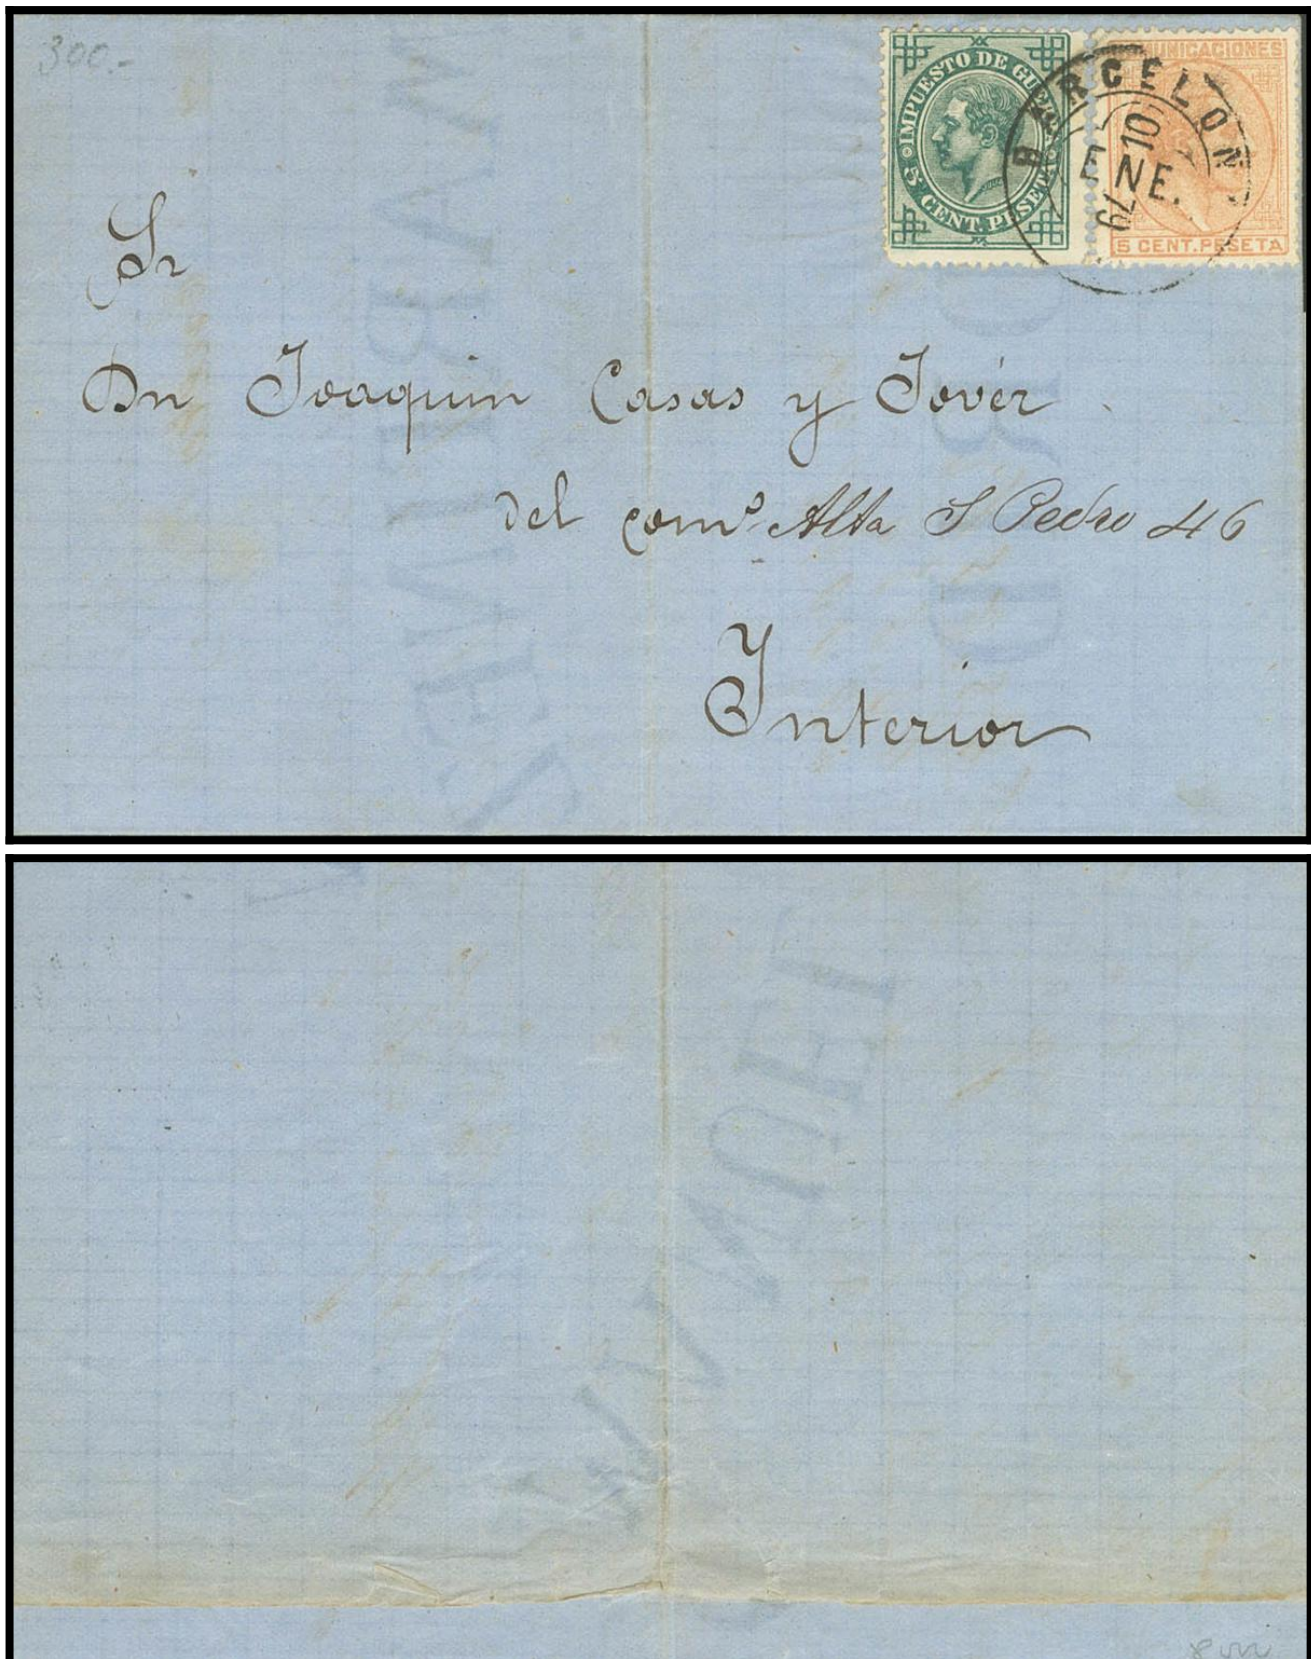 300.-
IMPUESTO DE GUERRA
5 CENT. PESETA
COMUNICACIONES
5 CENT. PESETA
BARCELONA
10
ENE.
79
Sr
Dn Joaquin Casas y Jovér
del comº Alta S Pedro 46
Interior